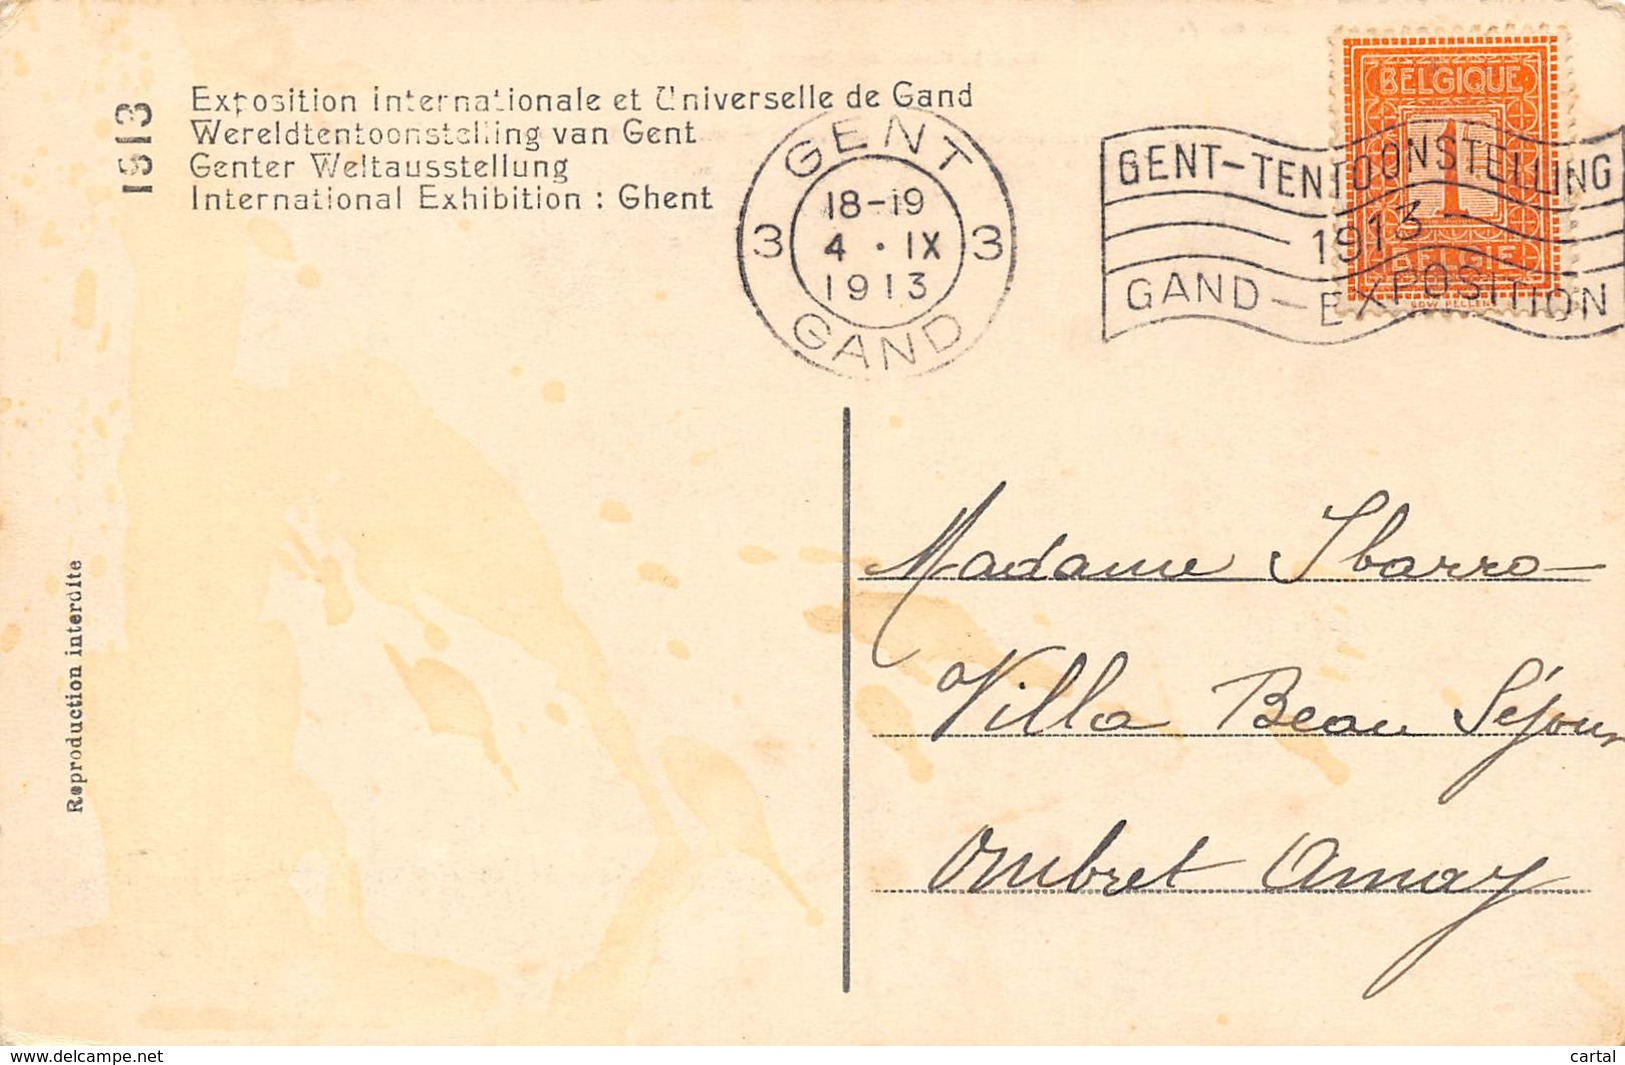 1913
Exposition internationale et Universelle de Gand
Wereldtentoonstelling van Gent
Genter Weltausstellung
International Exhibition : Ghent
GENT
18-19
3 4 · IX 3
1913
GAND
BELGIQUE
1
BELGIË
GENT-TENTOONSTELLING
1913
GAND-EXPOSITION
Reproduction interdite
Madame Ibarro
Villa Beau Séjour
Ombret Amay
www.delcampe.net
cartal